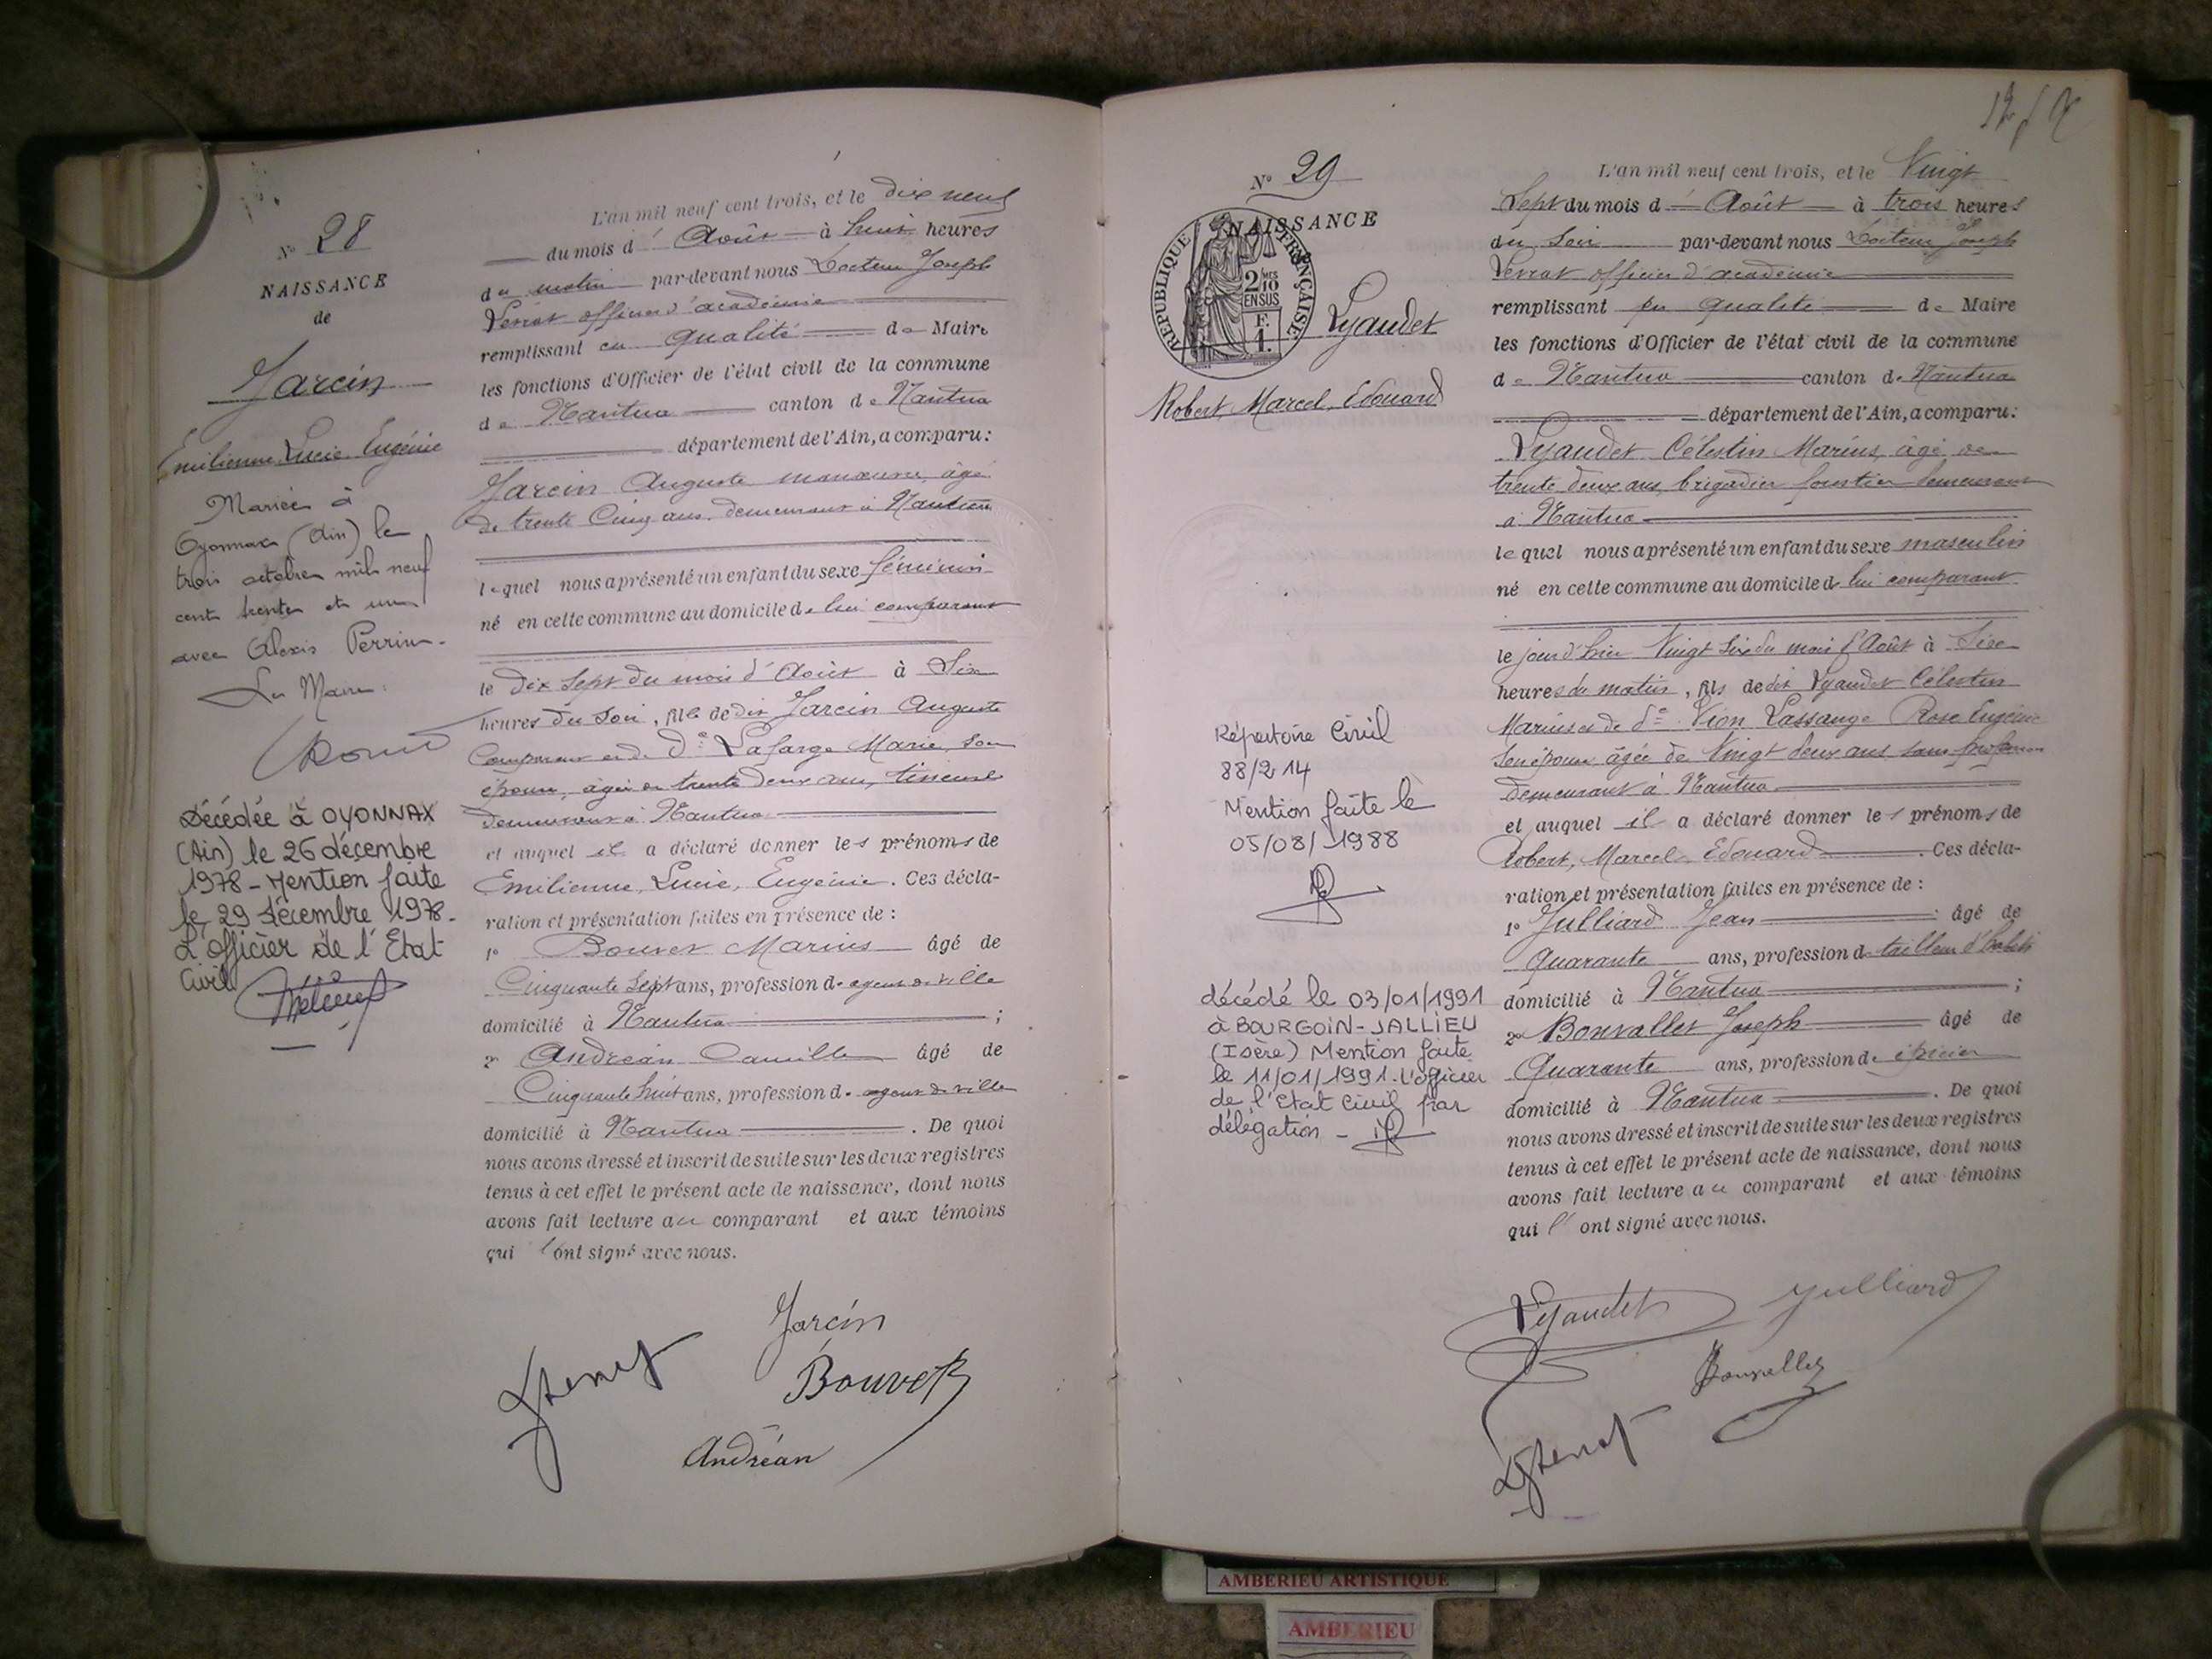 N° 28
NAISSANCE
de
Jarcin
Emilienne, Lucie, Eugénie
Mariée à
Oyonnax (Ain) le
trois octobre mil neuf
cent trente et un
avec Alexis Perrin.
Le Maire:
Décédée à OYONNAX
(Ain) le 26 décembre
1978 - Mention faite
le 29 décembre 1978.
L'officier de l'Etat
Civil
L'an mil neuf cent trois, et le dix neuf
du mois d' Août à huit heures
du matin par-devant nous Docteur Joseph
officier d'académie
remplissant en qualité de Maire
les fonctions d'Officier de l'état civil de la commune
de Nantua canton de Nantua
département de l'Ain, a comparu:
Jarcin Auguste manœuvre, âgé
de trente Cinq ans, demeurant à Nantua
lequel nous a présenté un enfant du sexe féminin
né en cette commune au domicile de lui comparant
le Dix Sept du mois d'Août à Six
heures du soir, fille de dit Jarcin Auguste
Comparant et de De Lafarge Marie, son
épouse, âgée de trente deux ans, tisseuse
demeurant à Nantua
et auquel il a déclaré donner les prénoms de
Emilienne, Lucie, Eugénie. Ces décla-
ration et présentation faites en présence de :
1° Bouvet Marius âgé de
Cinquante Sept ans, profession d. agent de ville
domicilié à Nantua ;
2° Andréan Camille âgé de
Cinquante huit ans, profession d. agent de ville
domicilié à Nantua . De quoi
nous avons dressé et inscrit de suite sur les deux registres
tenus à cet effet le présent acte de naissance, dont nous
avons fait lecture au comparant et aux témoins
qui l'ont signé avec nous.
Jarcin
Bouvet
Andréan
N° 29
NAISSANCE
REPUBLIQUE FRANÇAISE
2 MES
10
EN SUS
F.
1.
Lyaudet
Robert, Marcel, Edouard
Répertoire Civil
88/214
Mention faite le
05/08/1988
décédé le 03/01/1991
à BOURGOIN-JALLIEU
(Isère) Mention faite
le 11/01/1991. L'officier
de l'état civil par
délégation -
L'an mil neuf cent trois, et le Vingt
Sept du mois d' Août à trois heures
du soir par-devant nous Docteur Joseph
officier d'académie
remplissant en qualité de Maire
les fonctions d'Officier de l'état civil de la commune
de Nantua canton de Nantua
département de l'Ain, a comparu:
Lyaudet Célestin Marius, âgé de
trente deux ans, brigadier forestier demeurant
à Nantua
lequel nous a présenté un enfant du sexe masculin
né en cette commune au domicile de lui comparant
le jour d'hier Vingt Six du mois d'Août à Six
heures du matin, fils de dit Lyaudet Célestin
Marius et de de Vion Lassange Rose Eugénie
son épouse âgée de Vingt deux ans sans profession
demeurant à Nantua
et auquel il a déclaré donner les prénoms de
Robert, Marcel, Edouard . Ces décla-
ration et présentation faites en présence de :
1° Julliard Jean âgé de
Quarante ans, profession d. tailleur d'habits
domicilié à Nantua ;
2° Bonvallet Joseph âgé de
Quarante ans, profession d. épicier
domicilié à Nantua . De quoi
nous avons dressé et inscrit de suite sur les deux registres
tenus à cet effet le présent acte de naissance, dont nous
avons fait lecture au comparant et aux témoins
qui l'ont signé avec nous.
Lyaudet Julliard
Bonvallet
AMBERIEU ARTISTIQUE
AMBERIEU